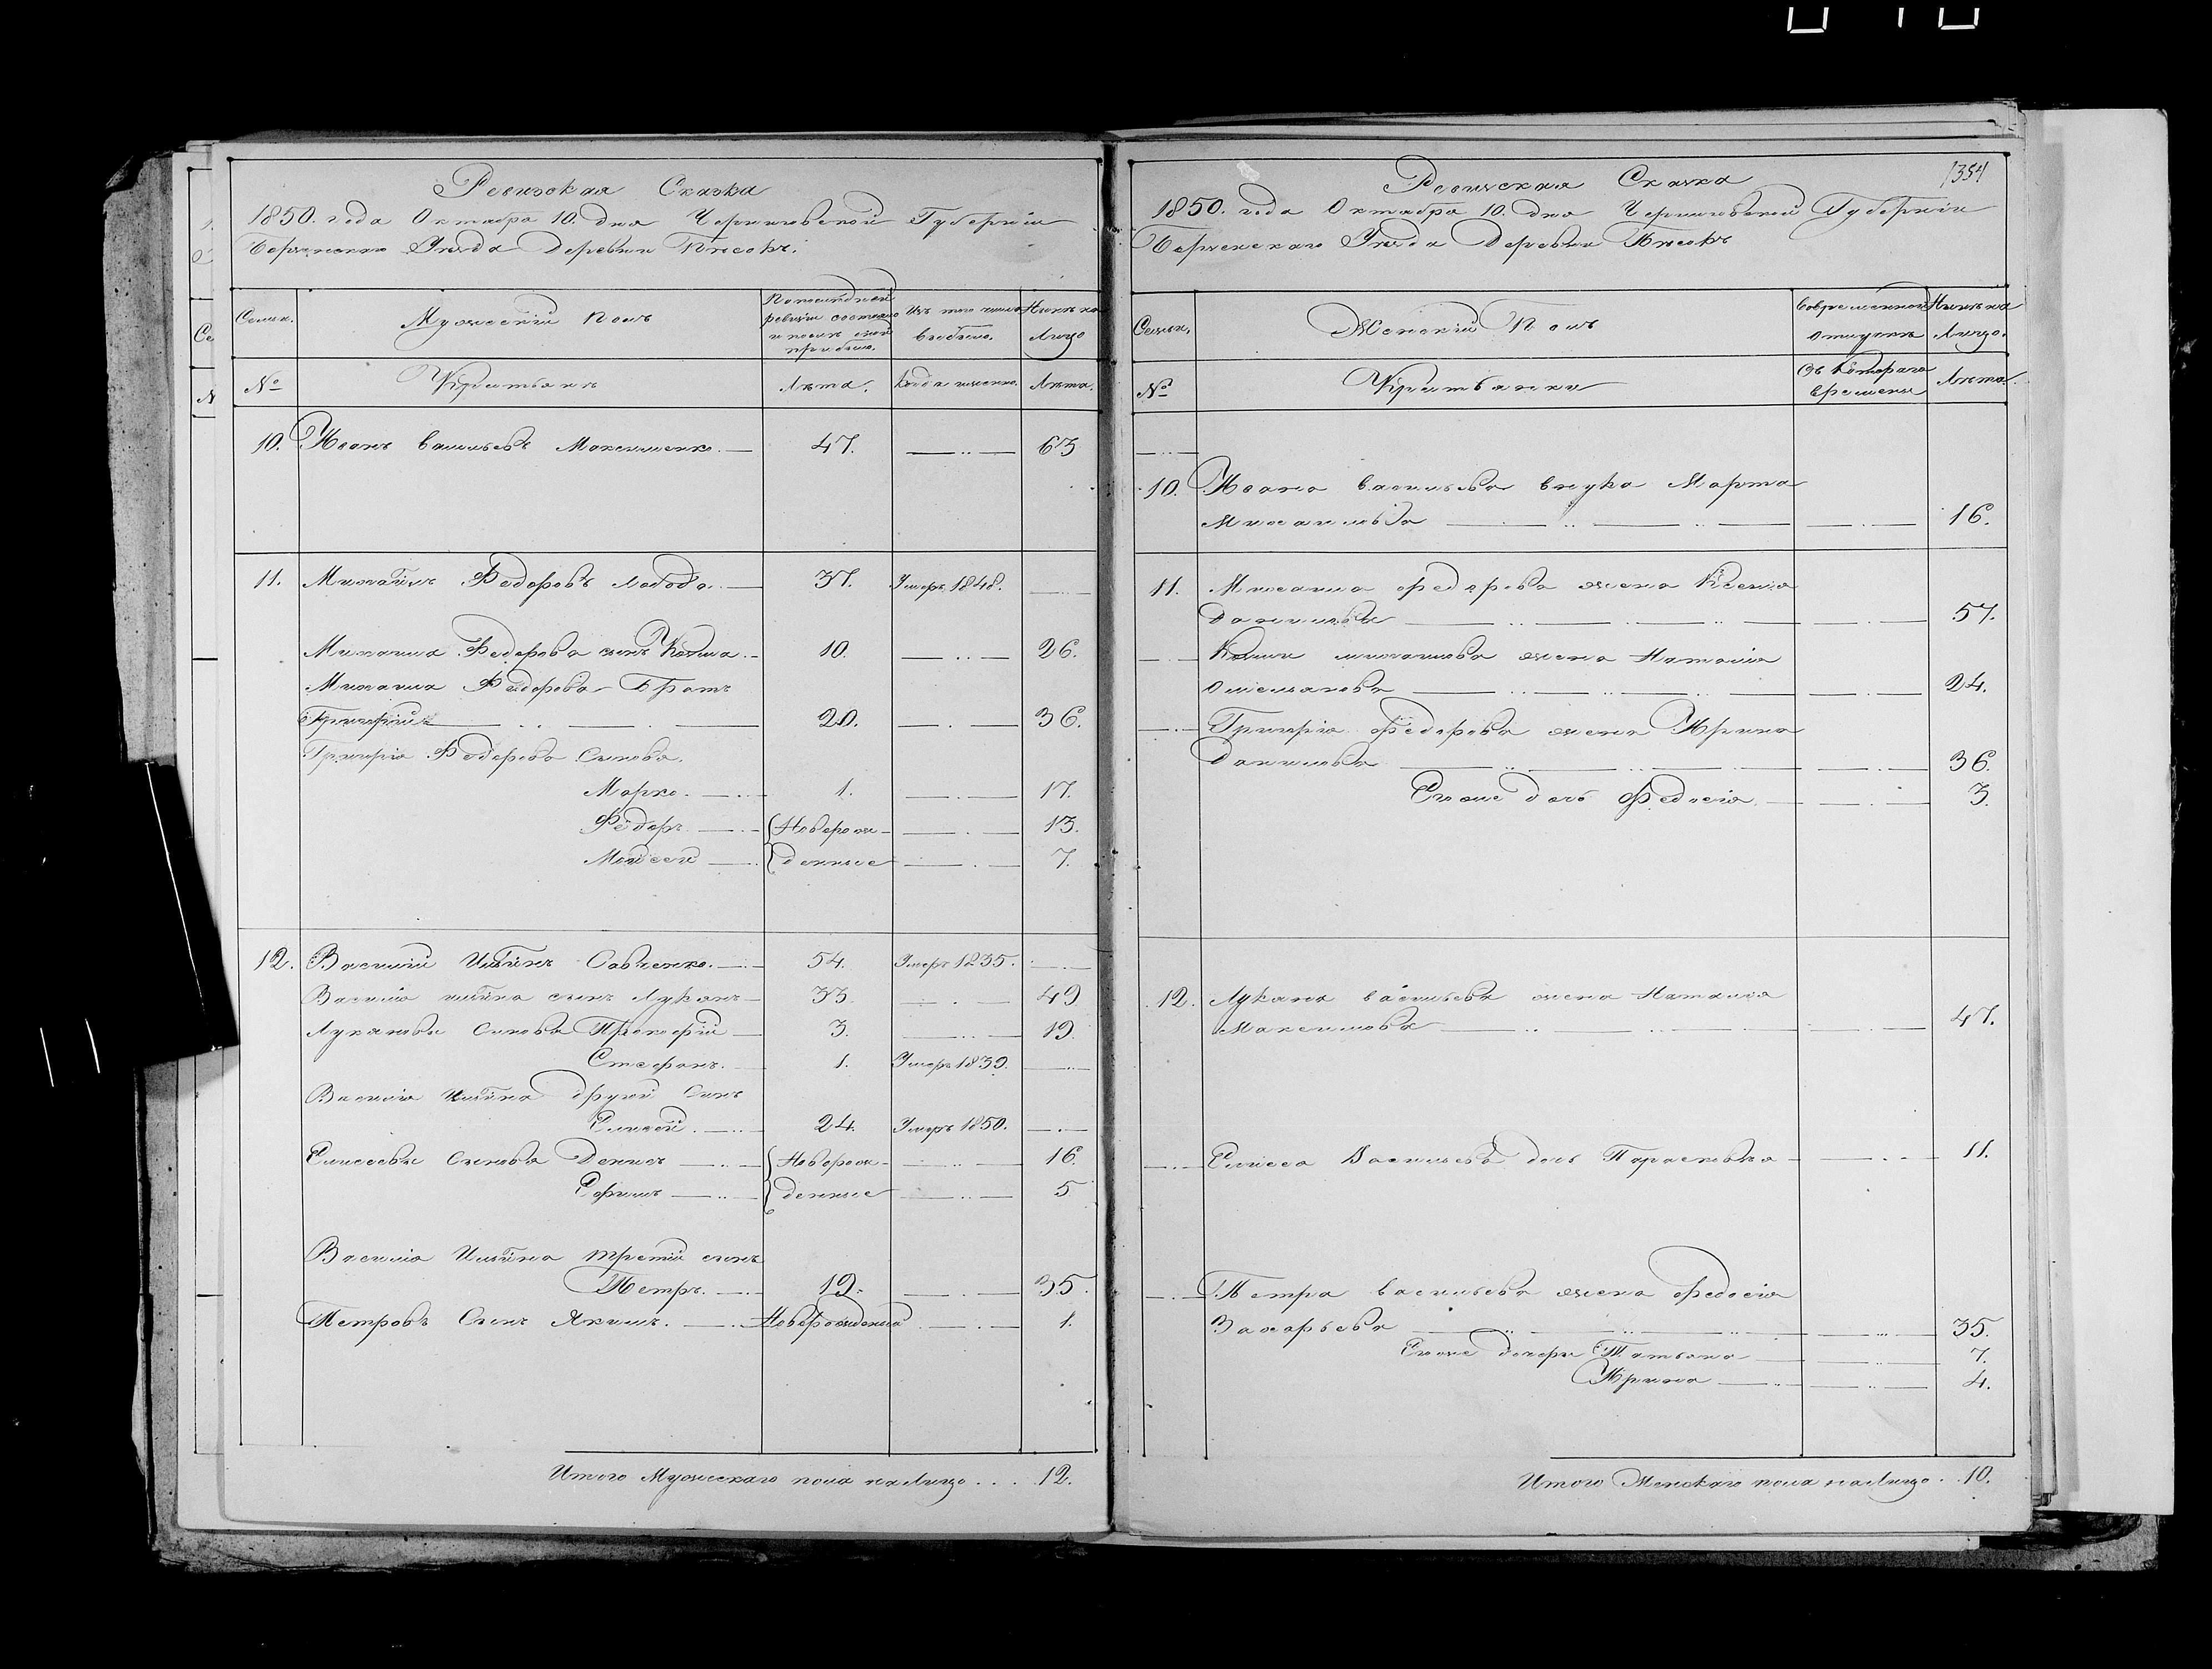 Ревизская Сказка
1850. года Октября 10. дня Черниговской Губернiи
Борзенскаго Уѣзда Деревни Пѣсокъ.
Семьи.
Мужескiй Полъ
По последней ревизiи состояло и после оной прибыло.
Изъ того числа выбыло.
Нынѣ на Лицо
№
Крестьянъ
Лѣта.
Когда именно.
Лѣта.
10. Иванъ Васильевъ Максименко. 47. 63
11. Михаилъ Федоровъ Лобода. 37. Умеръ 1848.
Михаила Федорова сынъ Козма. 10. 26.
Михаила Федорова Братъ
Григорiй 20. 36.
Григорiя Федорова Сыновья.
Марко. 1. 17.
Федоръ. Новорож- 13.
Моисей денные 7.
12. Василiй Ильинъ Савченко. 54. Умеръ 1835.
Василiя Ильина сынъ Лукянъ 33. 49
Лукяновы Сыновья Прокофiй 3. 19
Стефанъ. 1. Умеръ 1839.
Василiя Ильина другой Сынъ
Елисей. 24. Умеръ 1850.
Елисеевы Сыновья Денисъ Новорож- 16.
Ефимъ денные 5
Василiя Ильина третiй сынъ
Петръ. 19. 35.
Петровъ Сынъ Якимъ. Новорожденной 1.
Итого Мужескаго пола налицо . . . 12.
1354
Ревизская Сказка
1850. года Октября 10. дня Черниговской Губернiи
Борзенскаго Уѣзда Деревни Пѣсокъ
Семьи.
Женскiй Полъ
Во временной отлучкѣ
Нынѣ на Лицо.
№
Крестьянки
Съ которого времени
Лѣта.
10. Ивана Васильева внука Марта
Михайлова 16.
11. Михаила Федорова жена Ксенiя
Данилова 57.
Козмы Михаилова жена Наталiя
Омельянова 24.
Григорiя Федорова жена Ирина
Данилова 36.
Егоже дочь Федосiя. 3.
12. Лукяна Васильева жена Наталiя
Максимова 47.
Елисея Васильева дочь Парасковiя 11.
Петра Васильева жена Федосiя
Захарьева 35.
Егоже дочери Татьяна 7.
Ирина 4.
Итого Женскаго пола налицо . . 10.